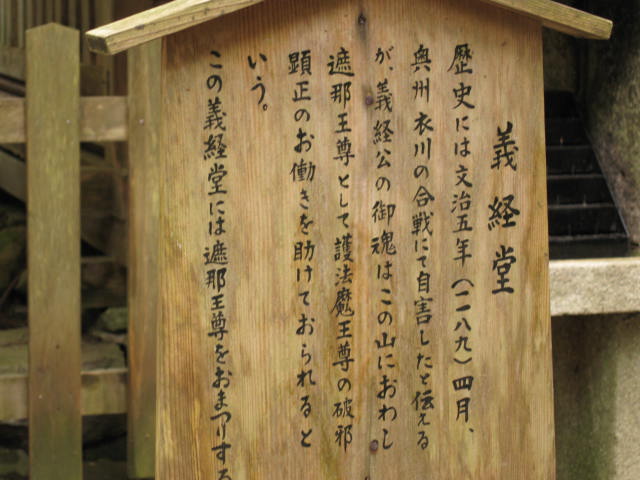 義経堂
歴史には文治五年(一一八九)四月、
奥州衣川の合戦にて自害したと伝える
が、義経公の御魂はこの山におわし
遮那王尊として護法魔王尊の破邪
顕正のお働きを助けておられると
いう。
この義経堂には遮那王尊をおまつりする